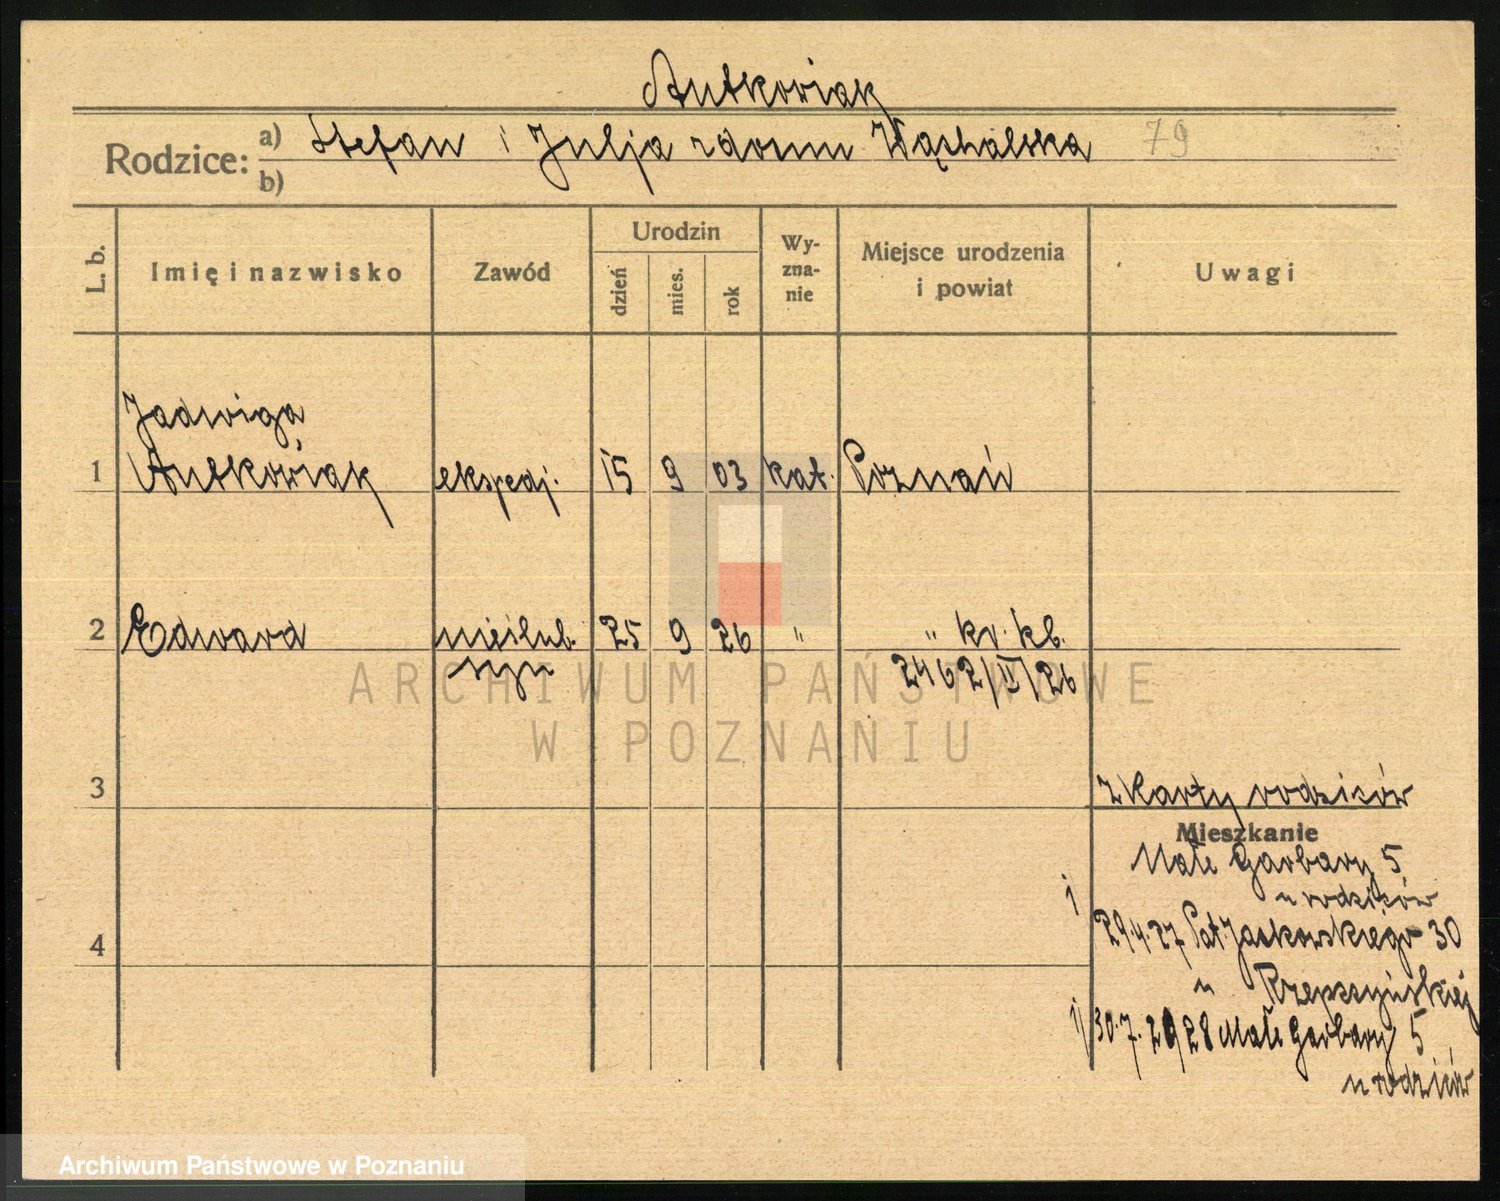 Antkowiak
Rodzice: a) Stefan i Julja z domu Wąchalska 79
b)
L. b. Imię i nazwisko Zawód Urodzin dzień mies. rok Wy-zna-nie Miejsce urodzenia i powiat Uwagi
Jadwiga
1 Antkowiak ekspedj. 15 9 03 kat. Poznań
2 Edward nieślub. 25 9 26 " " kr. kb.
syn 2462/II/26
ARCHIWUM PAŃSTWOWE
W POZNANIU
3 z karty rodziców
Mieszkanie
Małe Garbary 5
u rodziców
4 29.4.27 Pat. Jackowskiego 30
u Rzepczyńskiej
30.7. 28 Małe Garbary 5
u rodziców
Archiwum Państwowe w Poznaniu